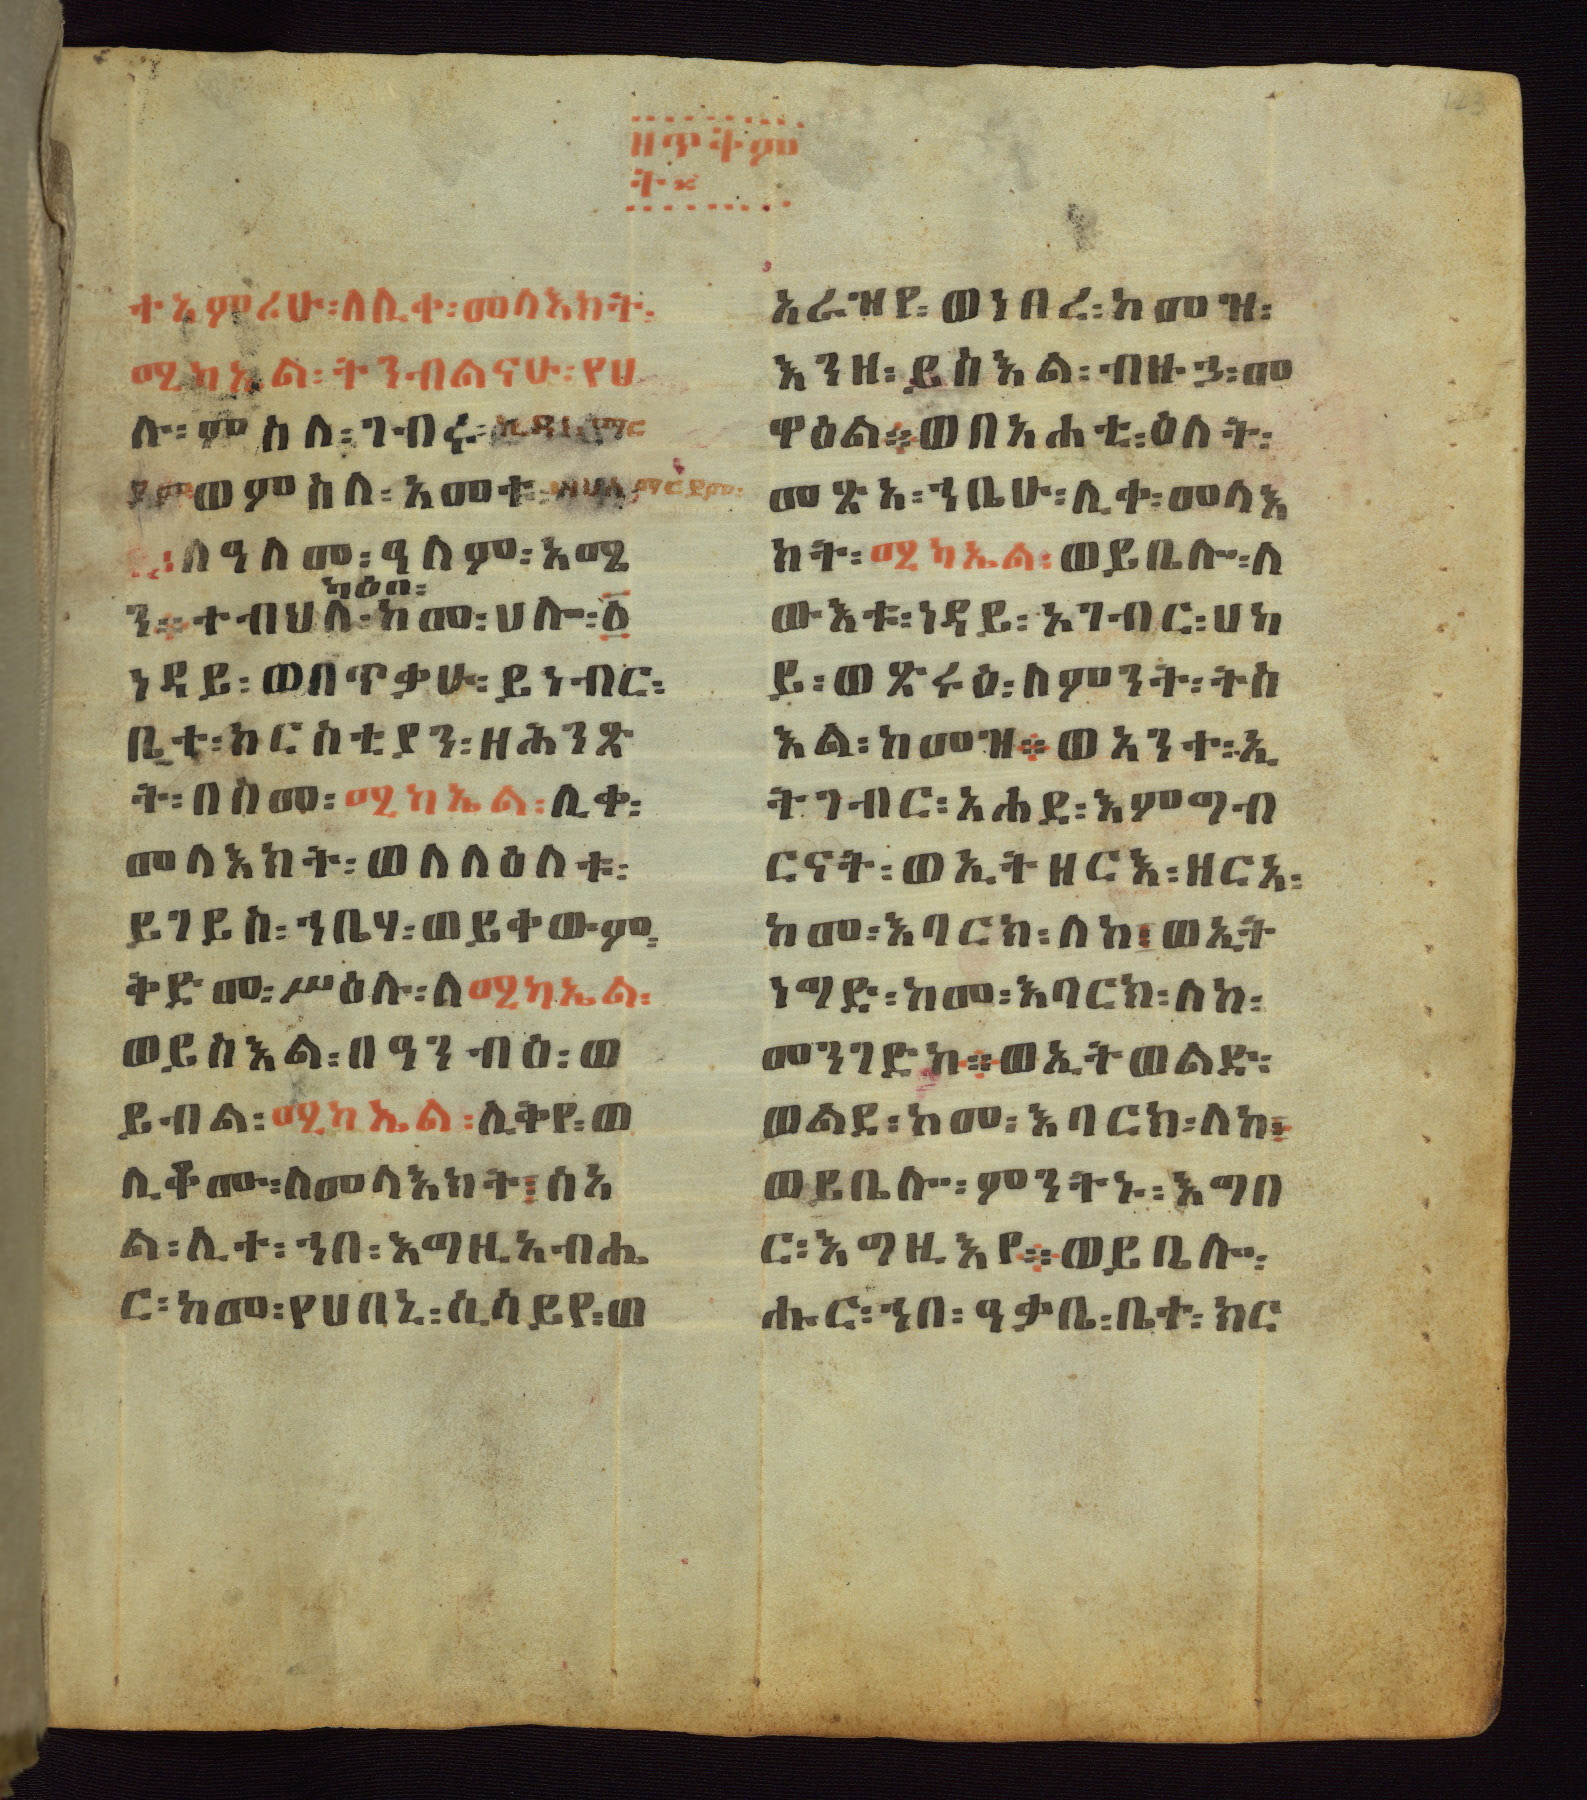 ዘጥቅም
ት፨
ተአምሪሁ፡ለሊቀ፡መላእክት፡
ሚካኤል፡ትንብልናሁ፡የሀ
ሉ፡ምስለ፡ገብሩ፡
ወምስለ፡አመቱ፡
ለዓለመ፡ዓለም፡አሜ
ካዕበ፡
ን፨ተብህለ፡ከመ፡ሀሎ፡፩
ነዳይ፡ወበጥቃሁ፡ይነብር፡
ቤተ፡ክርስቲያን፡ዘሕንጽ
ት፡በስመ፡ሚካኤል፡ሊቀ፡
መላእክት፡ወለለዕለቱ፡
ይገይስ፡ኀቤሃ፡ወይቀውም፡
ቅድመ፡ሥዕሉ፡ለሚካኤል፡
ወይስእል፡በዓንብዕ፡ወ
ይብል፡ሚካኤል፡ሊቅየ፡ወ
ሊቆሙ፡ለመላእክት፤ሰአ
ል፡ሊተ፡ኀበ፡እግዚአብሔ
ር፡ከመ፡የሀበኒ፡ሲሳይየ፡ወ
አራዝየ፡ወነበረ፡ከመዝ፡
እንዘ፡ይስእል፡ብዙኃ፡መ
ዋዕል፨ወበአሐቲ፡ዕለት፡
መጽአ፡ኀቤሁ፡ሊቀ፡መላእ
ክት፡ሚካኤል፡ወይቤሎ፡ለ
ውእቱ፡ነዳይ፡አገብር፡ሀካ
ይ፡ወጽሩዕ፡ለምንት፡ትስ
እል፡ከመዝ፨ወአንተ፡ኢ
ትገብር፡አሐደ፡እምግብ
ርናት፡ወኢትዘርእ፡ዘርአ፡
ከመ፡እባርክ፡ለከ፤ወኢት
ነግድ፡ከመ፡እባርክ፡ለከ፡
መንገድከ፨ወኢትወልድ፡
ወልደ፡ከመ፡እባርክ፡ለከ፤
ወይቤሎ፡ምንትኑ፡እግበ
ር፡እግዚእየ፨ወይቤሎ፡
ሑር፡ኀበ፡ዓቃቤ፡ቤተ፡ክር